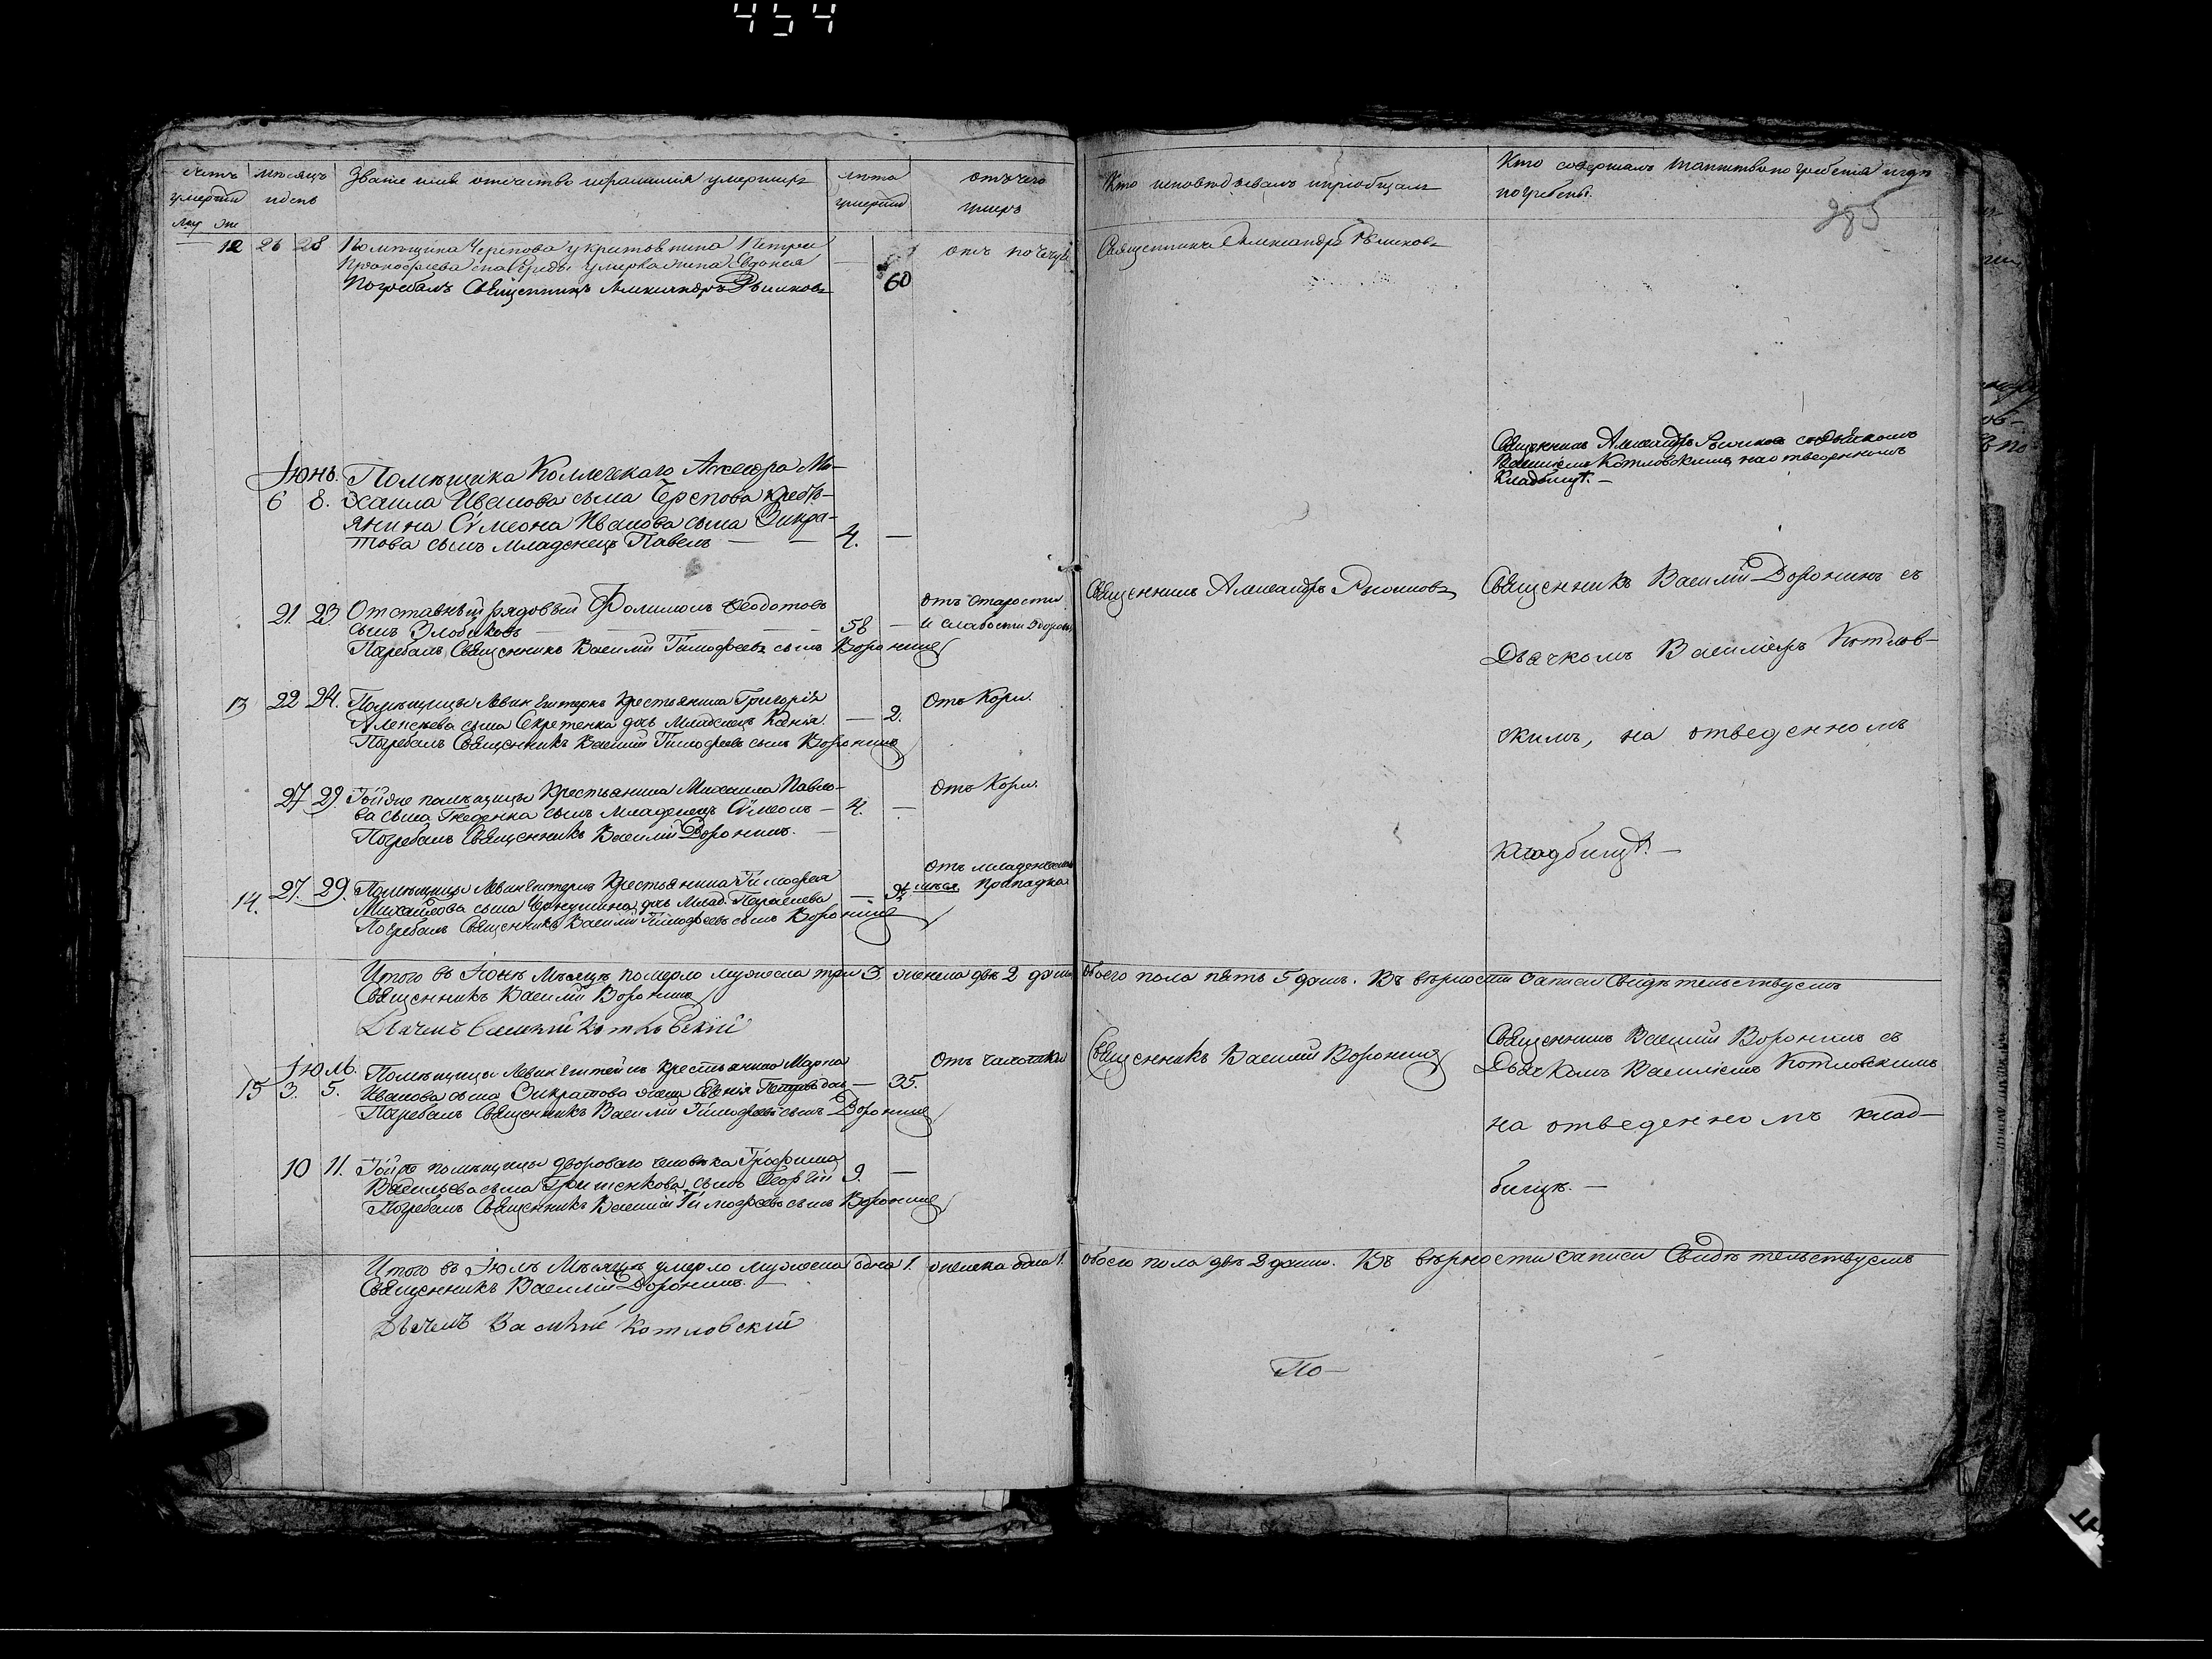 454
счетъ умершихъ
муж жен
мѣсяцъ и день
Званіе имя отчество и фамилія умершихъ
лѣта умершихъ
отъ чего умеръ
Кто исповѣдывалъ и пріобщалъ
Кто совершалъ таинство погребенія и гдѣ
погребены.
285
12 26 28 Помѣщика Черепова у крестьянина Петра
умерла жена Евдокія
60
Погребалъ Священникъ Александръ
отъ
Священникъ Александръ
Іюнь.
6 8. Помѣщика Коллежскаго Ассесора Ми-
хаила Иванова сына Черепова кресть-
янина Сѵмеона Иванова сына Зикра-
това сынъ младенецъ Павелъ — — 4. —
Священникъ Александръ съ Дьячкомъ
Василіемъ Котловскимъ на отведенномъ
Кладбищѣ. —
21. 23. Отставный рядовый Филимонъ Ѳеодотовъ
сынъ Злобиковъ — 58 —
отъ старости
и слабости здоровья
Погребалъ Священникъ Василій Тимофеевъ сынъ Воронинъ
Священникъ Александръ
Священникъ Василій Воронинъ съ
Дьячкомъ Василіемъ Котлов-
скимъ, на отведенномъ
Кладбищѣ. —
13 22 24. Помѣщицы Левенштернъ Крестьянина Григорія
Алексѣева сына Секретенка дочь младенецъ Ксенія. — 2.
Отъ Кори.
Погребалъ Священникъ Василій Тимофеевъ сынъ Воронинъ
27 29. Той же помѣщицы Крестьянина Михаила Павло-
ва сына сынъ младенецъ Сѵмеонъ — 4. —
Отъ Кори.
Погребалъ Священникъ Василій Воронинъ. —
14. 27. 29. Помѣщицы Левенштернъ Крестьянина Тимофея
Михайлова сына дочь млад. Параскева —
Отъ младенческаго
припадка
Погребалъ Священникъ Василій Тимофеевъ сынъ Воронинъ
Итого въ Іюнѣ Мѣсяцѣ померло мужеска три 3. женска двѣ 2 душъ обоего пола пять 5 душъ. Въ вѣрности записи Свидѣтельствуемъ
Священникъ Василій Воронинъ
Дьячекъ Василій Котловскій
Іюль.
15 3. 5. Помѣщицы Левенштейнъ Крестьянина Марка
Иванова сына Зикратова жена Ксенія Петрова дочь — 35.
Отъ чахотки
Погребалъ Священникъ Василій Тимофеевъ сынъ Воронинъ
Священникъ Василій Воронинъ
Священникъ Василій Воронинъ съ
Дьячкомъ Василіемъ Котловскимъ
на отведенномъ клад-
бищѣ. —
10 11. Той же помѣщицы двороваго человѣка Трофима
Васильева сына Гришенкова сынъ Георгій 9. —
Погребалъ Священникъ Василій Тимофеевъ сынъ Воронинъ
Итого въ Іюлѣ Мѣсяцѣ умерло мужеска одна 1. женска одна 1. обоего пола двѣ 2 души. Въ вѣрности записи Свидѣтельствуемъ
Священникъ Василій Воронинъ. —
Дьячекъ Василій Котловскій
По-